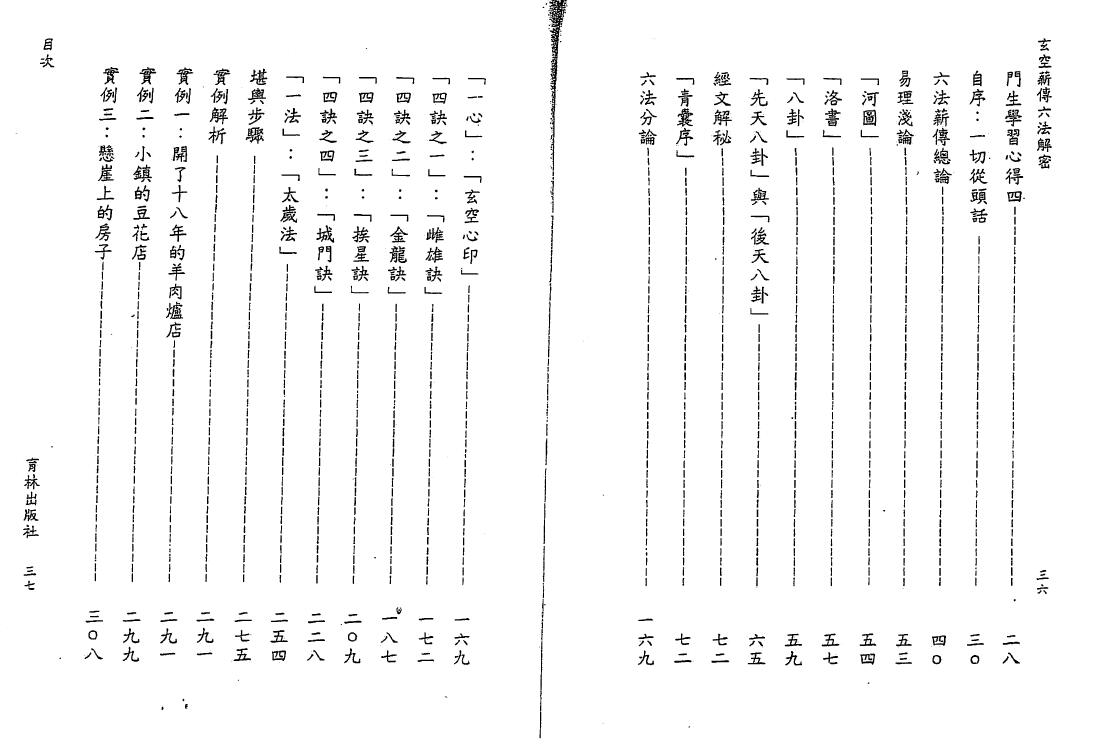 玄空薪傳六法解密
三六
門生學習心得四 二八
自序：一切從頭話 三○
六法薪傳總論 四○
易理淺論 五三
「河圖」 五四
「洛書」 五七
「八卦」 五九
「先天八卦」與「後天八卦」 六五
經文解秘 七二
「青囊序」 七二
六法分論 一六九
「一心」：「玄空心印」 一六九
「四訣之一」：「雌雄訣」 一七二
「四訣之二」：「金龍訣」 一八七
「四訣之三」：「挨星訣」 二○九
「四訣之四」：「城門訣」 二二八
「一法」：「太歲法」 二五四
堪輿步驟 二七五
實例解析 二九一
實例一：開了十八年的羊肉爐店 二九一
實例二：小鎮的豆花店 二九九
實例三：懸崖上的房子 三○八
目次
育林出版社 三七